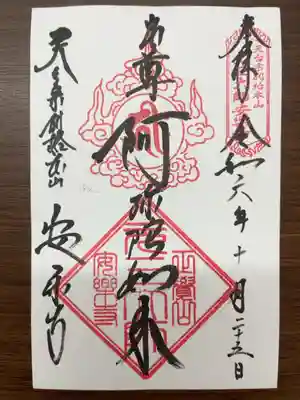 奉拝 令和六年十月二十五日
本尊 阿弥陀如来
天台宗別格本山 安楽寺
天台宗別格本山